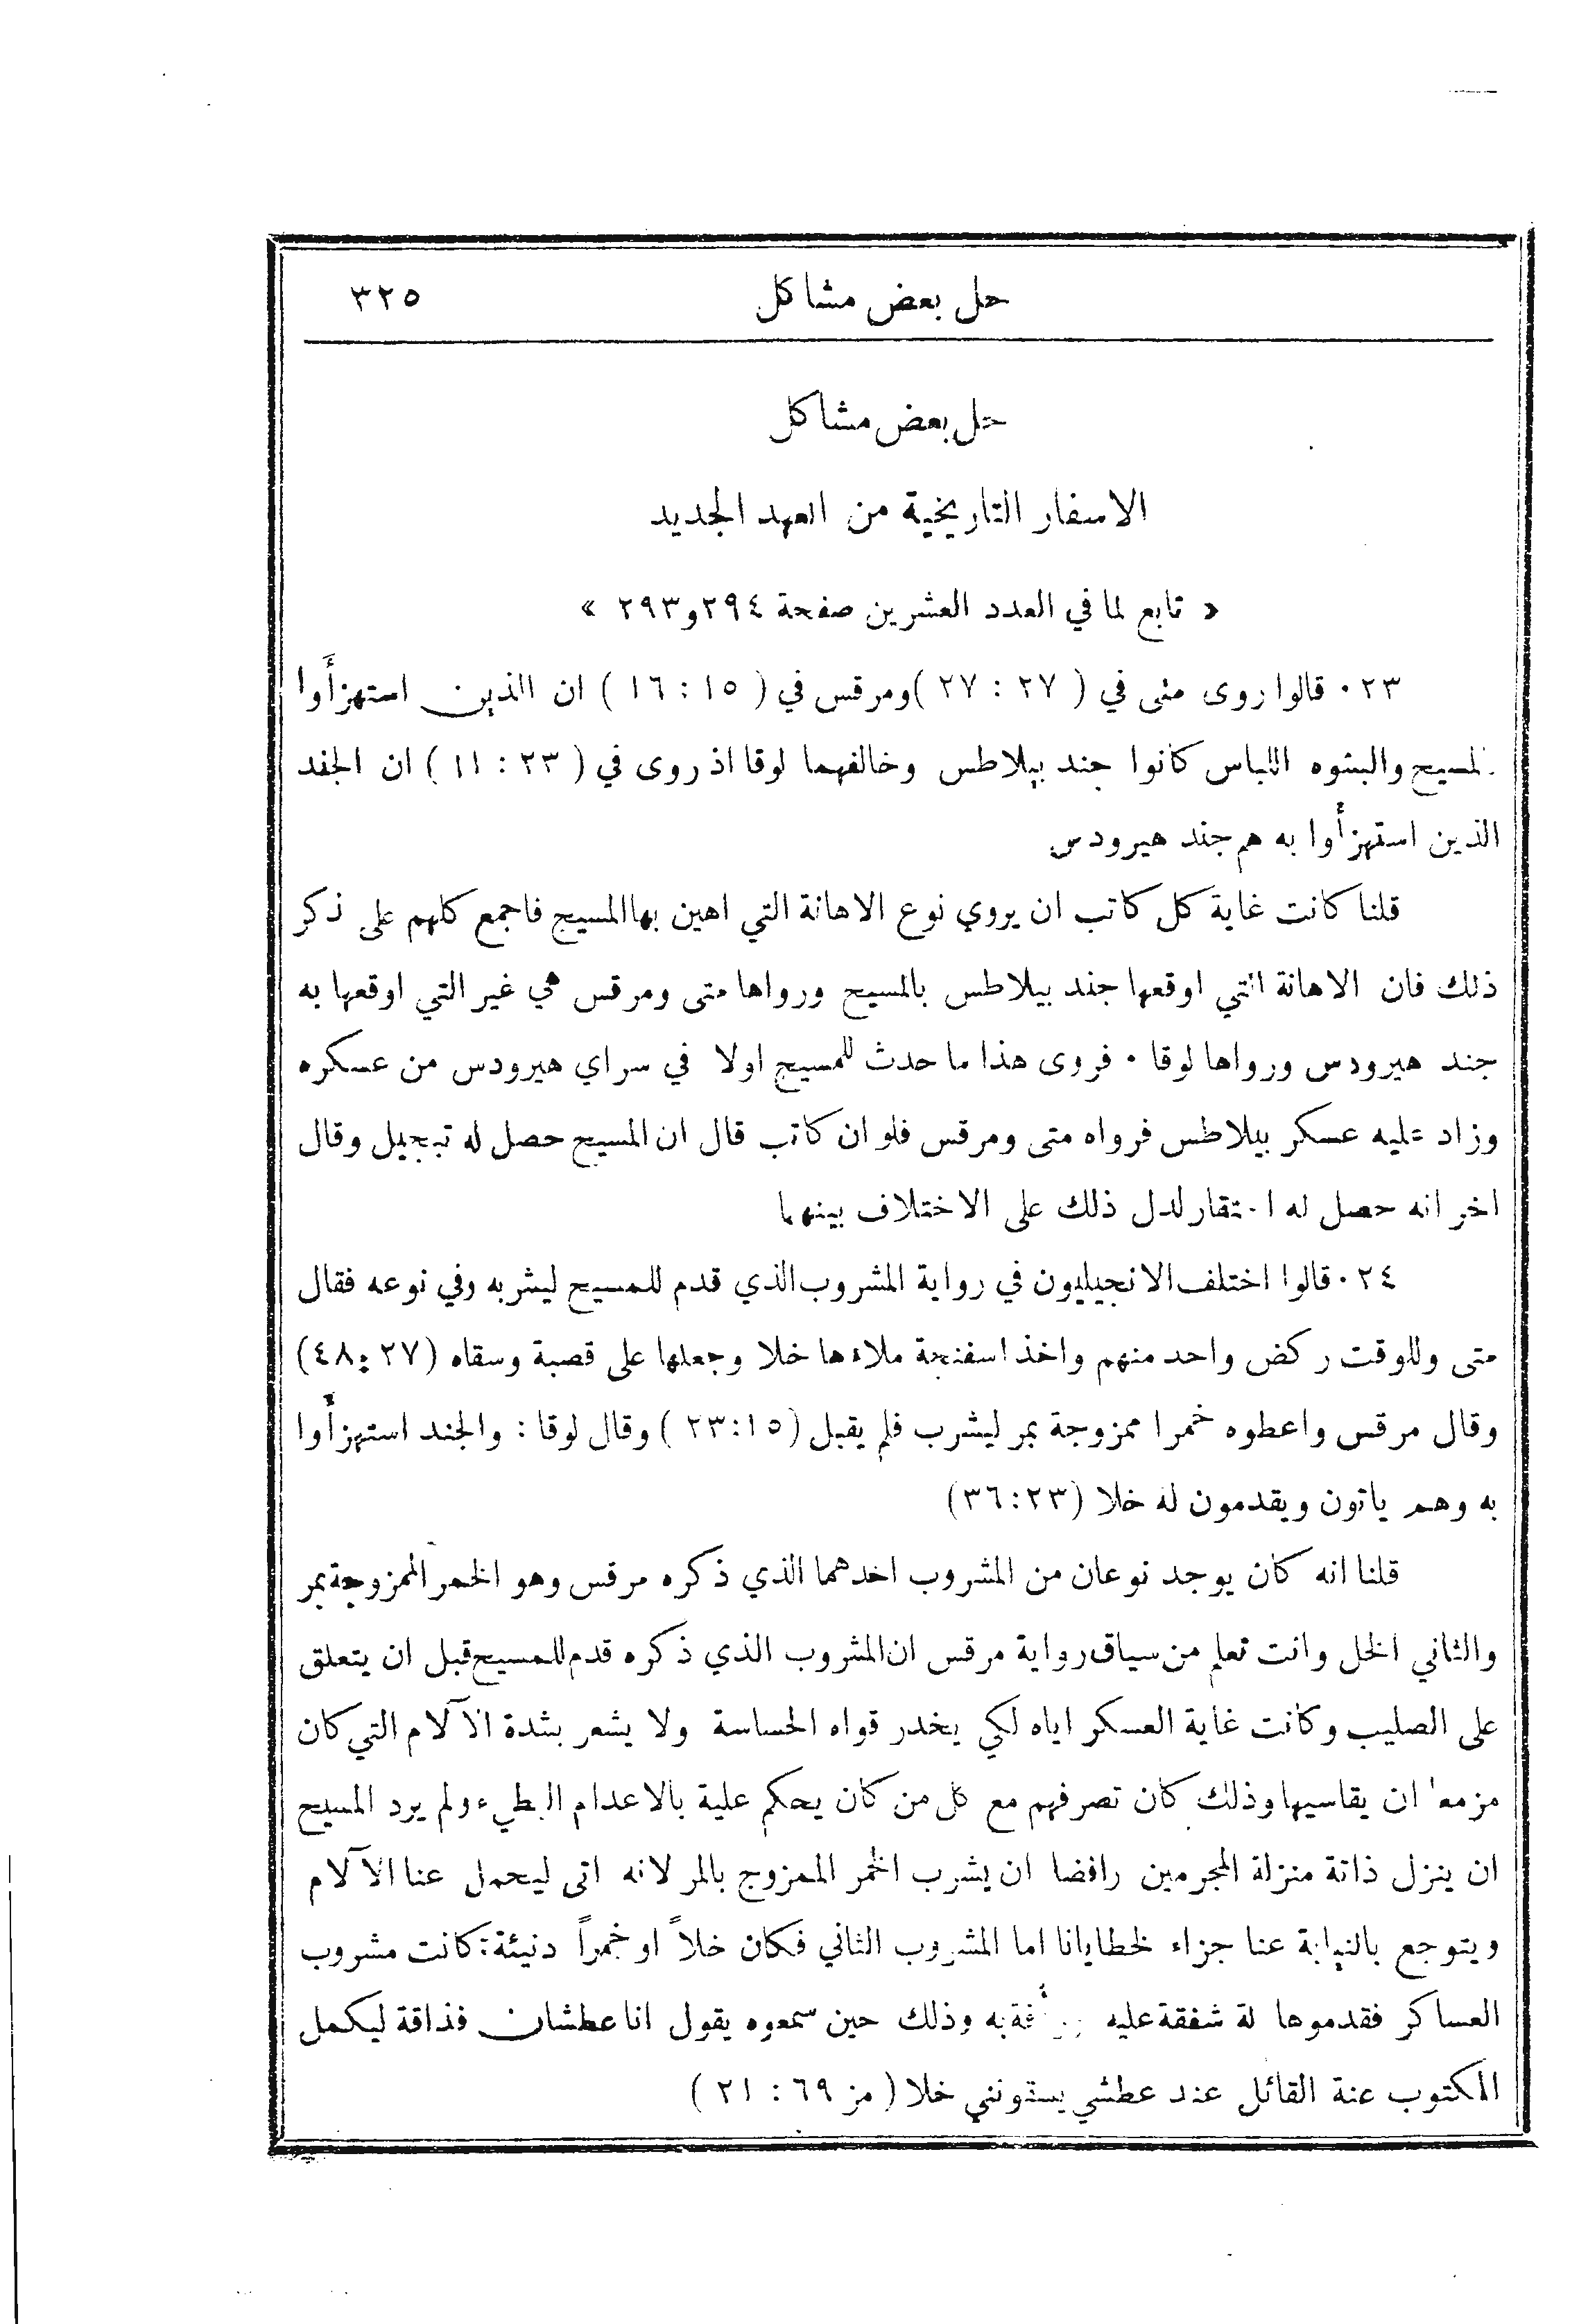 حل بعض مشاكل ٣٢٥
حل بعض مشاكل
الاسفار التاريخية من العهد الجديد
« تابع لما في العدد العشرين صفحة ٢٩٤ و٢٩٣ »
٢٣٠ قالوا روى متى في ( ٢٧ : ٢٧ ) ومرقس في ( ١٥ : ١٦ ) ان الذين استهزأوا
بالمسيح والبسوه اللباس كانوا جند بيلاطس وخالفهما لوقا اذ روى في ( ٢٣ : ١١ ) ان الجند
الذين استهزأوا به هم جند هيرودس
قلنا كانت غاية كل كاتب ان يروي نوع الاهانة التي اهين بها المسيح فاجمع كلهم على ذكر
ذلك فان الاهانة التي اوقعها جند بيلاطس بالمسيح ورواها متى ومرقس هي غير التي اوقعها به
جند هيرودس ورواها لوقا ٠ فروى هذا ما حدث للمسيح اولا في سراي هيرودس من عسكره
وزاد عليه عسكر بيلاطس فرواه متى ومرقس فلو ان كاتب قال ان المسيح حصل له تبجيل وقال
اخر انه حصل له احتقار لدل ذلك على الاختلاف بينهما
٢٤٠ قالوا اختلف الانجيليون في رواية المشروب الذي قدم للمسيح ليشربه وفي نوعه فقال
متى وللوقت ركض واحد منهم واخذ اسفنجة ملاءها خلا وجعلها على قصبة وسقاه (٢٧ : ٤٨)
وقال مرقس واعطوه خمرا ممزوجة بمر ليشرب فلم يقبل (١٥ : ٢٣ ) وقال لوقا : والجند استهزأوا
به وهم ياتون ويقدمون له خلا (٢٣ : ٣٦)
قلنا انه كان يوجد نوعان من المشروب احدهما الذي ذكره مرقس وهو الخمر الممزوجة بمر
والثاني الخل وانت تعلم من سياق رواية مرقس ان المشروب الذي ذكره قدم للمسيح قبل ان يتعلق
على الصليب وكانت غاية العسكر اياه لكي يخدر قواه الحساسة ولا يشعر بشدة الآلام التي كان
مزمعا ان يقاسيها وذلك كان تصرفهم مع كل من كان يحكم علية بالاعدام البطيء ولم يرد المسيح
ان ينزل ذاتة منزلة المجرمين رافضا ان يشرب الخمر الممزوج بالمر لانه اتى ليحمل عنا الآلام
ويتوجع بالنيابة عنا جزاء لخطايانا اما المشروب الثاني فكان خلاً او خمراً دنيئة كانت مشروب
العساكر فقدموها لة شفقة عليه ورأفة به وذلك حين سمعوه يقول انا عطشان فذاقة ليكمل
المكتوب عنة القائل عند عطشي يسقونني خلا ( مز ٦٩ : ٢١ )